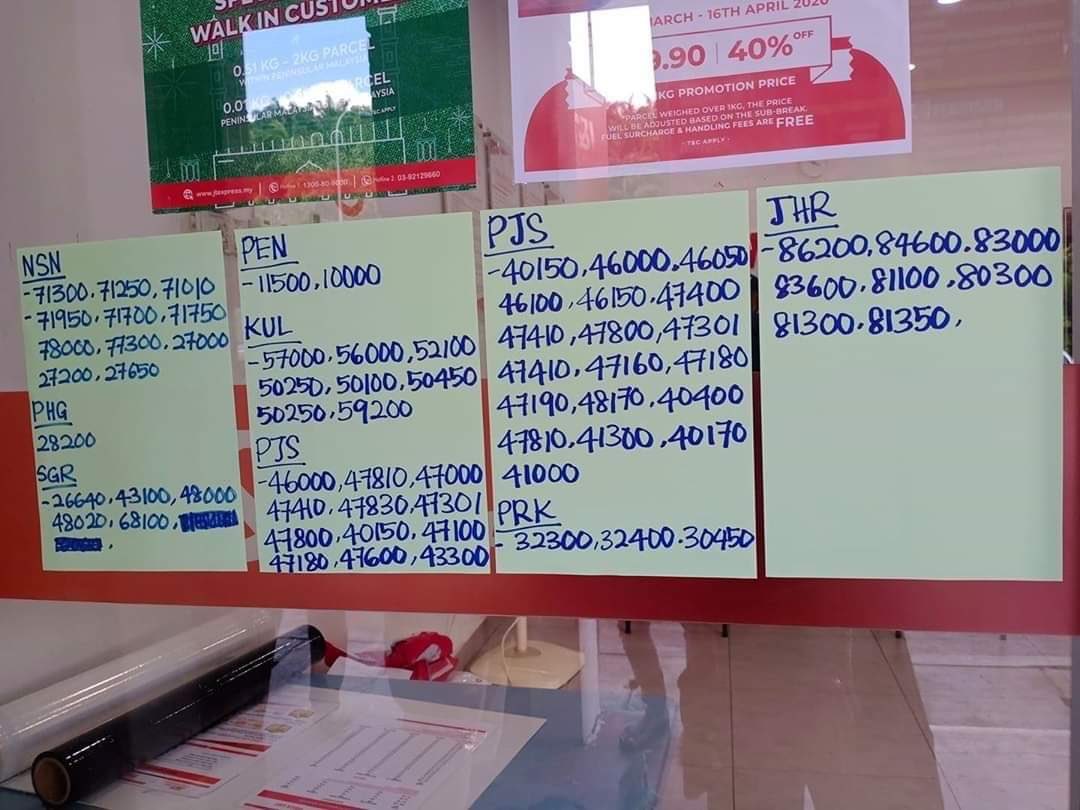 WALK IN CUSTOME
0.51 KG - 2KG PARCEL
WITHIN PENINSULAR MALAYSIA
PENINSULAR MALAYSIA
T&C APPLY
www.jtexpress.my
Hotline 1: 1300-80-9000
Hotline 2: 03-92129660
MARCH - 16TH APRIL 2020
9.90 | 40% OFF
KG PROMOTION PRICE
*PARCEL WEIGHED OVER 1KG, THE PRICE
WILL BE ADJUSTED BASED ON THE SUB-BREAK.
FUEL SURCHARGE & HANDLING FEES ARE FREE
- T&C APPLY -
NSN
-71300, 71250, 71010
-71950, 71700, 71750
78000, 77300, 27000
27200, 27650
PHG
28200
SGR
-26640, 43100, 48000
48020, 68100,
PEN
-11500, 10000
KUL
-57000, 56000, 52100
50250, 50100, 50450
50250, 59200
PJS
-46000, 47810, 47000
47410, 47830, 47301
47800, 40150, 47100
47180, 47600, 43300
PJS
-40150, 46000, 46050
46100, 46150, 47400
47410, 47800, 47301
47410, 47160, 47180
47190, 48170, 40400
47810, 41300, 40170
41000
PRK
- 32300, 32400. 30450
JHR
-86200, 84600. 83000
83600, 81100. 80300
81300. 81350,